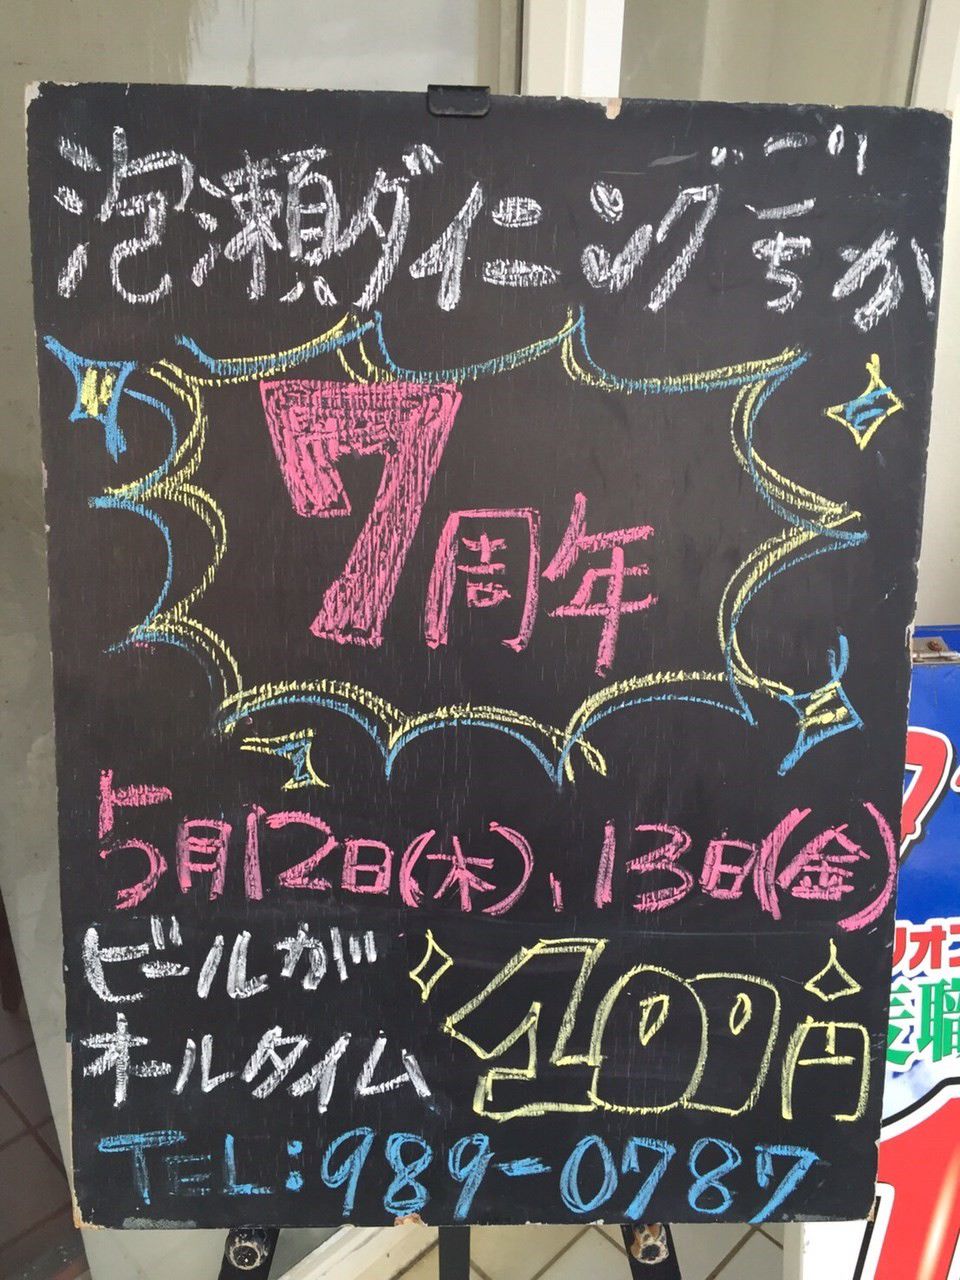 泡瀬ダイニング
7周年
5月12日(木)、13日(金)
ビールが
オールタイム
100円
TEL:989-0787
リオ
職